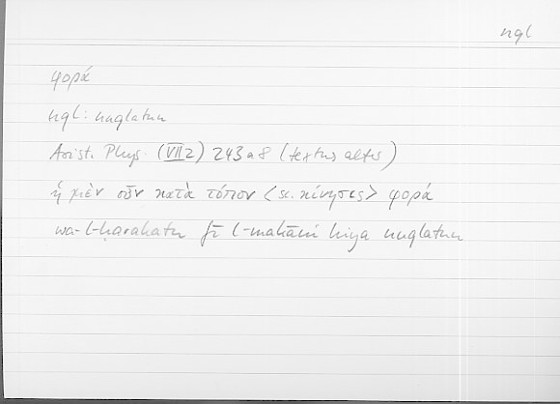 nql
φορά
nql: nuqlatun
Arist. Phys. (VII 2) 243a8 (textus alter)
ἡ μὲν οὖν κατὰ τόπον <sc. κίνησις> φορά
wa-l-ḥarakatu fī l-makāni hiya nuqlatun